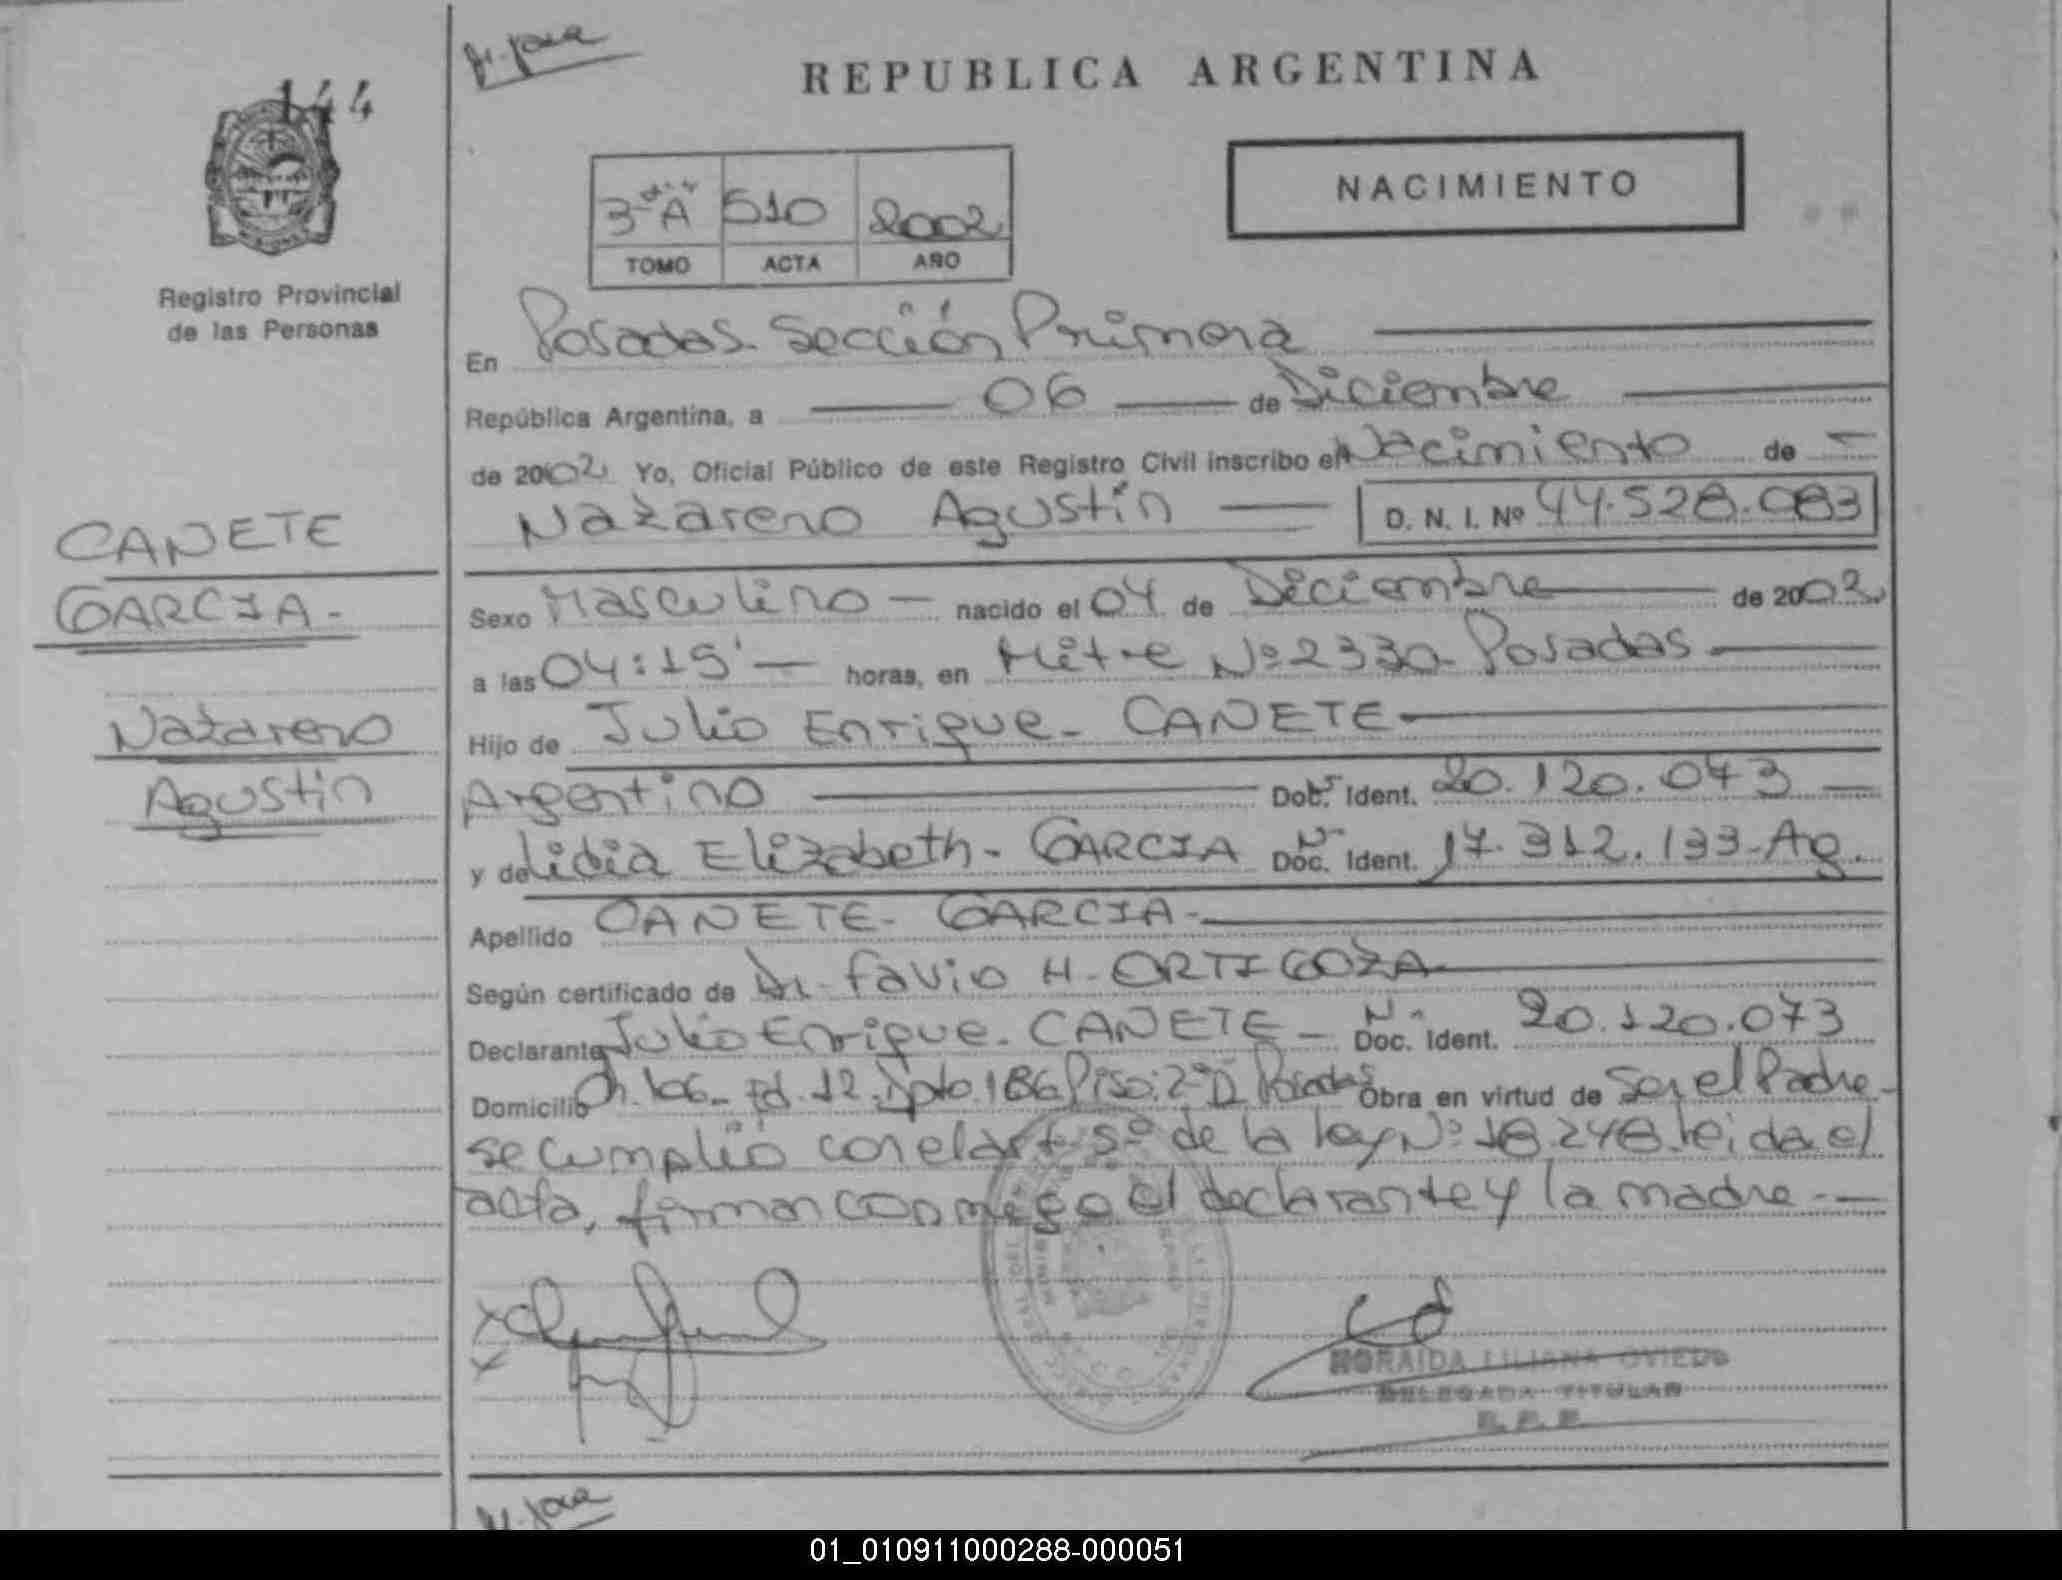 144
REPUBLICA ARGENTINA
NACIMIENTO
3º A 510 2002
TOMO ACTA AÑO
Registro Provincial
de las Personas
CANETE
GARCIA-
Nazareno
Agustín
En Posadas. Sección Primera
República Argentina, a 06 de Diciembre
de 2002 Yo, Oficial Público de este Registro Civil inscribo el Nacimiento de
Nazareno Agustín D. N. I. Nº 44.528.083
Sexo Masculino nacido el 04 de Diciembre de 2002
a las 04:15' horas, en Mitre Nº 2330 Posadas
Hijo de Julio Enrique- CANETE
Argentino Doc. Ident. 20.120.073
y de Lidia Elizabeth- GARCIA Doc. Ident. 17.312.133-Ag.
Apellido CANETE- GARCIA-
Según certificado de Dr. Favio H- ORTIGOZA
Declarante Julio Enrique- CANETE Nº Doc. Ident. 20.120.073
Domicilio Ch. 106- Ed. 12. Dpto. 186 Piso: 2º D Posadas Obra en virtud de Ser el Padre-
se cumplió con el art 5º de la ley Nº 18.248. leida el
acta, firman conmigo el declarante y la madre.-
NORAIDA LILIANA OVIEDO
DELEGADA TITULAR
R. P. P.
01_010911000288-000051